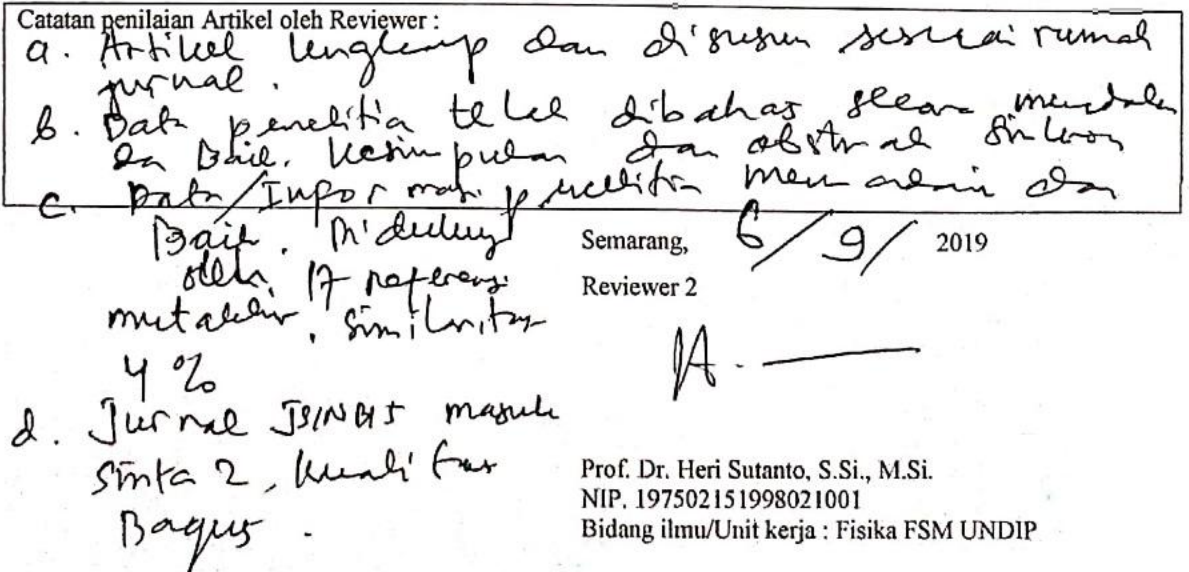 Catatan penilaian Artikel oleh Reviewer :
a. Artikel lengkap dan disusun sesuai rumah
jurnal.
b. Data penelitia telah dibahas secara mendalam
dan Baik. Kesimpulan dan abstrak sinkron
c. Data/Informasi penelitian memadai dan
Baik. Didukung
oleh 17 referensi
mutakhir. Similaritas
4 %
d. Jurnal JSINBIS masuk
Sinta 2, kualitas
Bagus.
Semarang, 6/9/ 2019
Reviewer 2
Prof. Dr. Heri Sutanto, S.Si., M.Si.
NIP. 197502151998021001
Bidang ilmu/Unit kerja : Fisika FSM UNDIP